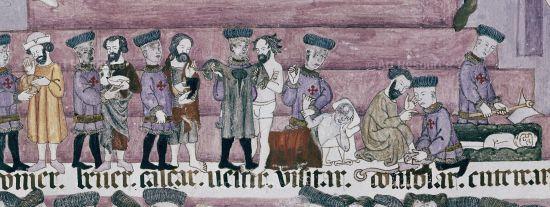 omer. beuer. calçar. uestir. visitar. consolar. enterrar